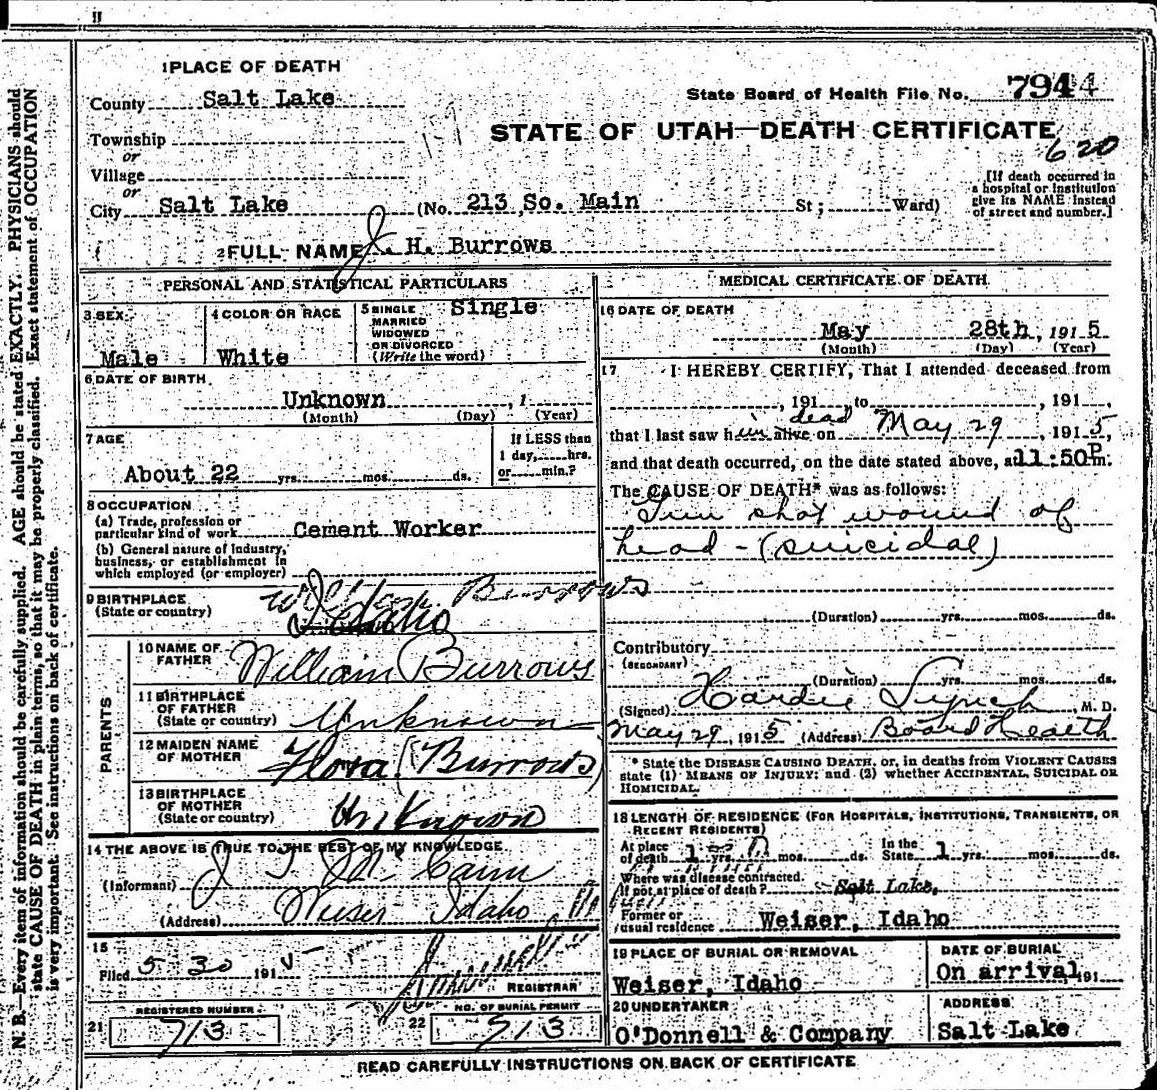 1 PLACE OF DEATH
County Salt Lake
State Board of Health File No. 7944
Township
or
STATE OF UTAH—DEATH CERTIFICATE
620
Village
or
City Salt Lake (No. 213 So. Main St; Ward)
[If death occurred in
a hospital or institution
give its NAME instead
of street and number.]
2 FULL NAME J. H. Burrows
PERSONAL AND STATISTICAL PARTICULARS
3 SEX
Male
4 COLOR OR RACE
White
5 SINGLE
MARRIED
WIDOWED
OR DIVORCED
(Write the word)
Single
6 DATE OF BIRTH
Unknown , 1
(Month) (Day) (Year)
7 AGE
About 22 yrs. mos. ds.
If LESS than
1 day, hrs.
or min.?
8 OCCUPATION
(a) Trade, profession or
particular kind of work Cement Worker
(b) General nature of industry,
business, or establishment in
which employed (or employer)
9 BIRTHPLACE
(State or country)
Burrows
Idaho
PARENTS
10 NAME OF
FATHER William Burrows
11 BIRTHPLACE
OF FATHER
(State or country) Unknown
12 MAIDEN NAME
OF MOTHER Flora (Burrows)
13 BIRTHPLACE
OF MOTHER
(State or country) Unknown
14 THE ABOVE IS TRUE TO THE BEST OF MY KNOWLEDGE
(Informant) J. T. McCann
(Address) Weiser Idaho
15
Filed 5 30 1915
REGISTRAR
21 REGISTERED NUMBER
713
22 NO. OF BURIAL PERMIT
713
MEDICAL CERTIFICATE OF DEATH
16 DATE OF DEATH
May 28th, 1915
(Month) (Day) (Year)
17 I HEREBY CERTIFY, That I attended deceased from
, 191 , to , 191 ,
that I last saw him alive dead on May 29, 1915,
and that death occurred, on the date stated above, at 11:50 P m.
The CAUSE OF DEATH* was as follows:
Gun shot wound of
head - (suicidal)
(Duration) yrs. mos. ds.
Contributory
(SECONDARY)
(Duration) yrs. mos. ds.
(Signed) Hardie Lynch, M. D.
May 29, 1915 (Address) Board Health
* State the DISEASE CAUSING DEATH, or, in deaths from VIOLENT CAUSES
state (1) MEANS OF INJURY; and (2) whether ACCIDENTAL, SUICIDAL OR
HOMICIDAL.
18 LENGTH OF RESIDENCE (FOR HOSPITALS, INSTITUTIONS, TRANSIENTS, OR
RECENT RESIDENTS)
At place In the
of death 1 yrs. mos. ds. State 1 yrs. mos. ds.
Where was disease contracted,
if not at place of death? Salt Lake,
Former or
usual residence Weiser, Idaho
19 PLACE OF BURIAL OR REMOVAL
Weiser, Idaho
DATE OF BURIAL
On arrival, 191
20 UNDERTAKER
O'Donnell & Company
ADDRESS
Salt Lake
READ CAREFULLY INSTRUCTIONS ON BACK OF CERTIFICATE
N. B.—Every item of information should be carefully supplied. AGE should be stated EXACTLY. PHYSICIANS should
state CAUSE OF DEATH in plain terms, so that it may be properly classified. Exact statement of OCCUPATION
is very important. See instructions on back of certificate.